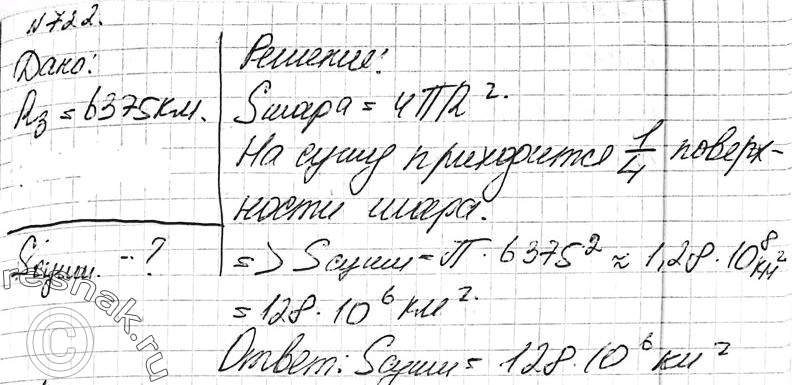 N 722.
Дано:
Rз = 6375 км.
Sсуши - ?
Решение:
Sшара = 4ПR².
На сушу приходится 1/4 поверх-
ности шара.
=> Sсуши = П · 6375² ≈ 1,28 · 10⁸ км²
= 128 · 10⁶ км².
Ответ: Sсуши = 128 · 10⁶ км²
©
resnak.ru